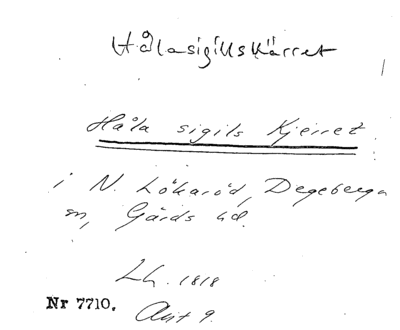 Hålasigillskärret
Håla sigils Kjerret
i N. Lökaröd, Degeberga
sn, Gärds hd.
Lh. 1818
Nr 7710. Akt 9.